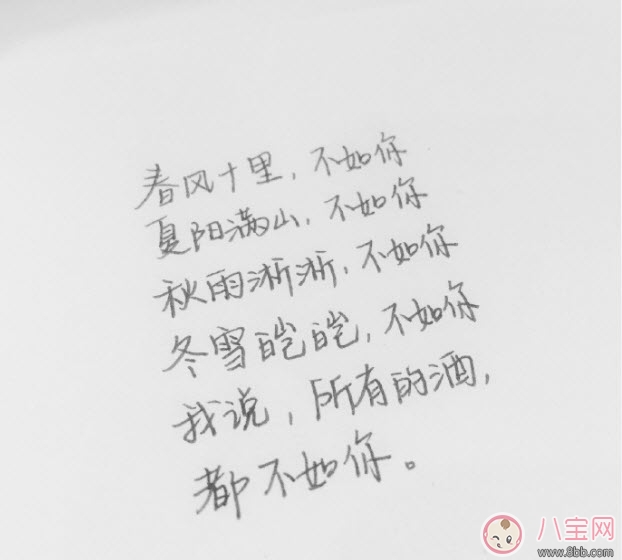 春风十里，不如你
夏阳满山，不如你
秋雨淅淅，不如你
冬雪皑皑，不如你
我说，所有的酒，
都不如你。
八宝网
www.8bb.com